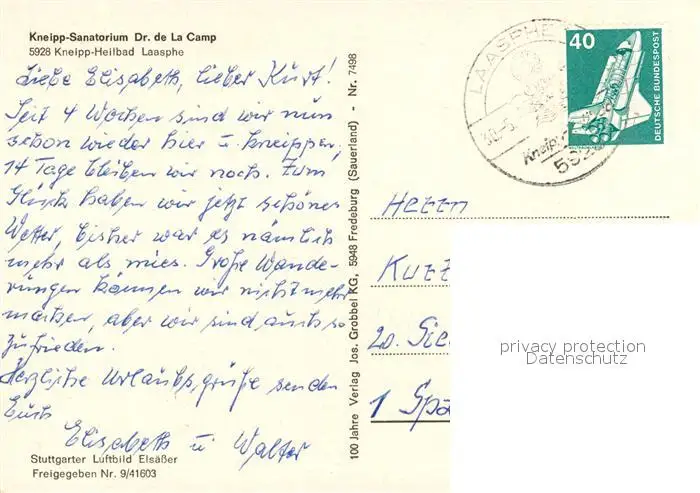 Kneipp-Sanatorium Dr. de La Camp
5928 Kneipp-Heilbad Laasphe
Liebe Elisabeth, lieber Kurt!
Seit 4 Wochen sind wir nun
schon wieder hier u. kneippen,
14 Tage bleiben wir noch. Zum
Glück haben wir jetzt schönes
Wetter, bisher war es nämlich
mehr als mies. Große Wande-
rungen können wir nicht mehr
machen, aber wir sind auch so
zufrieden.
Herzliche Urlaubsgrüße senden
Euch
Elisabeth u Walter
Stuttgarter Luftbild Elsäßer
Freigegeben Nr. 9/41603
100 Jahre Verlag Jos. Grobbel KG, 5948 Fredeburg (Sauerland) - Nr. 7498
LAASPHE
Kneipp
592
40
DEUTSCHE BUNDESPOST
Herrn
Kurt
20. Sie
1 Spa
privacy protection
Datenschutz